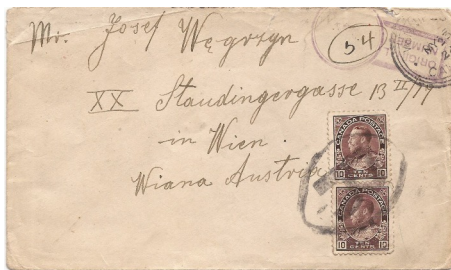 Mr. Josef Węgrzyn
5.4
XX Staudingergasse 13 II/19
in Wien.
Wiana Austria
CANADA POSTAGE
10 TEN CENTS 10
CANADA POSTAGE
10 TEN CENTS 10